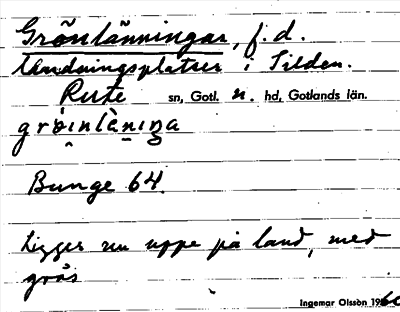 Grönlänningar, f.d.
landningsplatser i Tilden.
Rute sn, Gotl. n. hd, Gotlands län.
Bunge 64
Ligger nu uppe på land, med
gräs
Ingemar Olsson 1960